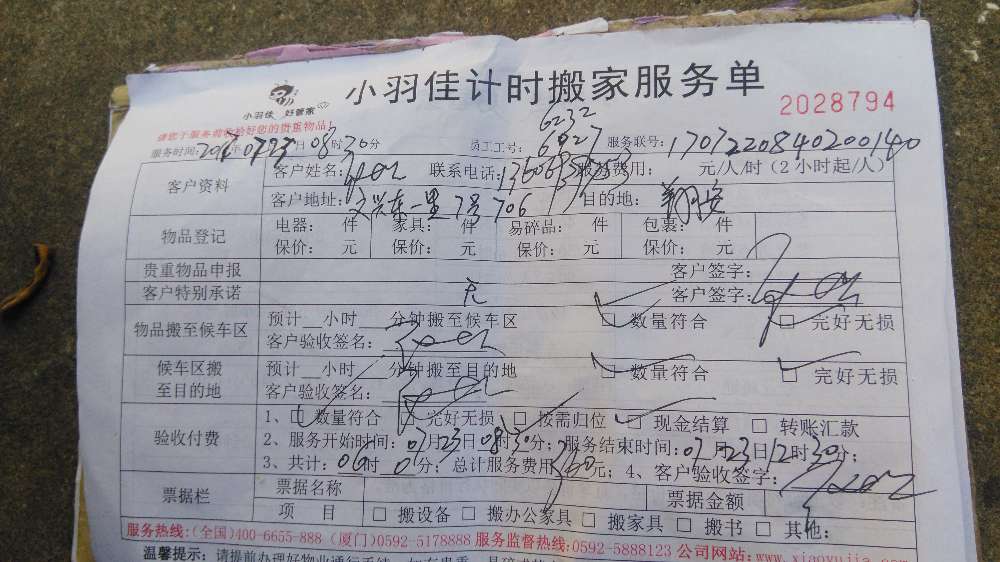 小羽佳计时搬家服务单
小羽佳 好管家
2028794
请您于服务前收拾好您的贵重物品!
6232
服务时间: 月 08时30分 员工工号: 6927 服务联号:
客户资料 客户姓名: 联系电话: 服务费用: 元/人/时（2小时起/人）
客户地址: 文兴东一里7号706 目的地: 翔安
物品登记 电器: 件 家具: 件 易碎品: 件 包裹: 件
保价: 元 保价: 元 保价: 元 保价: 元
贵重物品申报 客户签字:
客户特别承诺 无 客户签字:
物品搬至候车区 预计__小时__分钟搬至候车区 □ 数量符合 □ 完好无损
客户验收签名:
候车区搬至目的地 预计__小时__分钟搬至目的地 □ 数量符合 □ 完好无损
客户验收签名:
验收付费 1、□ 数量符合 □ 完好无损 □ 按需归位 □ 现金结算 □ 转账汇款
2、服务开始时间: 07月23日08时30分; 服务结束时间: 07月23日12时30分;
3、共计: 时 分; 总计服务费用 元; 4、客户验收签字:
票据栏 票据名称 票据金额
项 目 □ 搬设备 □ 搬办公家具 □ 搬家具 □ 搬书 □ 其他:
服务热线:(全国)400-6655-888 (厦门)0592-5178888 服务监督热线:0592-5888123 公司网站:www.xiaoyujia.com
温馨提示: 请提前办理好物业通行手续